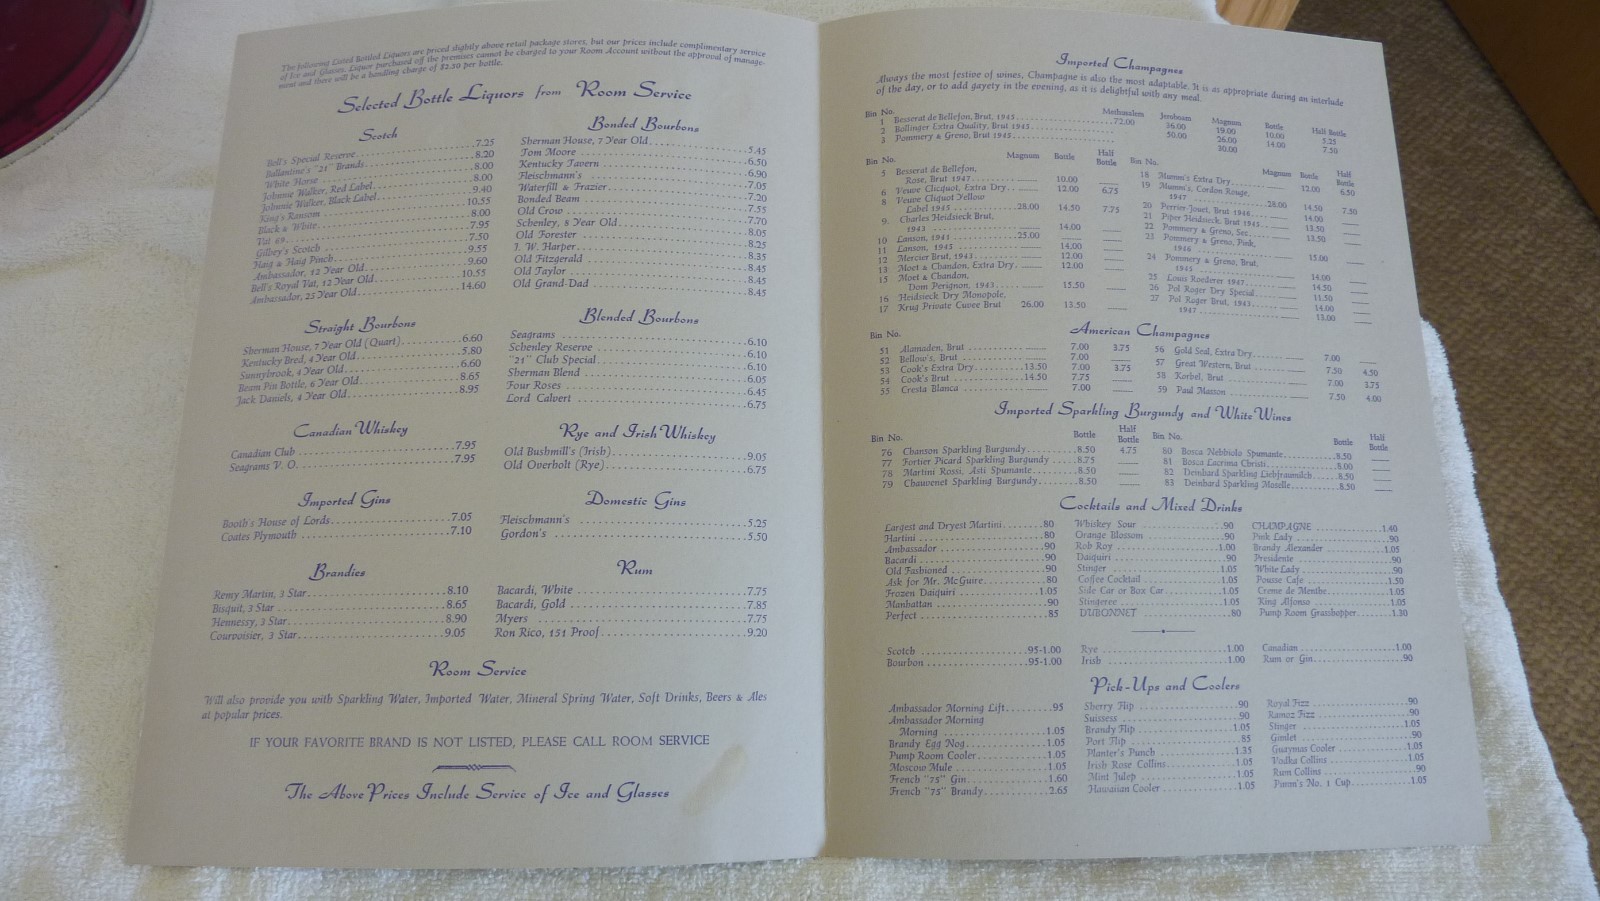 The following Listed Bottled Liquors are priced slightly above retail package stores, but our prices include complimentary service
of Ice and Glasses. Liquor purchased off the premises cannot be charged to your Room Account without the approval of manage-
ment and there will be a handling charge of $2.50 per bottle.
Selected Bottle Liquors from Room Service
Scotch
Bell's Special Reserve 7.25
Ballantine's "21" Brands 8.20
White Horse 8.00
Johnnie Walker, Red Label 8.00
Johnnie Walker, Black Label 9.40
King's Ransom 10.55
Black & White 8.00
Vat 69 7.95
Gilbey's Scotch 7.50
Haig & Haig Pinch 9.55
Ambassador, 12 Year Old 9.60
Bell's Royal Vat, 12 Year Old 10.55
Ambassador, 25 Year Old 14.60
Straight Bourbons
Sherman House, 7 Year Old (Quart) 6.60
Kentucky Bred, 4 Year Old 5.80
Sunnybrook, 4 Year Old 6.60
Beam Pin Bottle, 6 Year Old 8.65
Jack Daniels, 4 Year Old 8.95
Canadian Whiskey
Canadian Club 7.95
Seagrams V. O. 7.95
Imported Gins
Booth's House of Lords 7.05
Coates Plymouth 7.10
Brandies
Remy Martin, 3 Star 8.10
Bisquit, 3 Star 8.65
Hennessy, 3 Star 8.90
Courvoisier, 3 Star 9.05
Bonded Bourbons
Sherman House, 7 Year Old 5.45
Tom Moore 6.50
Kentucky Tavern 6.90
Fleischmann's 7.05
Waterfill & Frazier 7.20
Bonded Beam 7.55
Old Crow 7.70
Schenley, 8 Year Old 8.05
Old Forester 8.25
I. W. Harper 8.35
Old Fitzgerald 8.45
Old Taylor 8.45
Old Grand-Dad 8.45
Blended Bourbons
Seagrams 6.10
Schenley Reserve 6.10
"21" Club Special 6.10
Sherman Blend 6.05
Four Roses 6.45
Lord Calvert 6.75
Rye and Irish Whiskey
Old Bushmill's (Irish) 9.05
Old Overholt (Rye) 6.75
Domestic Gins
Fleischmann's 5.25
Gordon's 5.50
Rum
Bacardi, White 7.75
Bacardi, Gold 7.85
Myers 7.75
Ron Rico, 151 Proof 9.20
Room Service
Will also provide you with Sparkling Water, Imported Water, Mineral Spring Water, Soft Drinks, Beers & Ales
at popular prices.
IF YOUR FAVORITE BRAND IS NOT LISTED, PLEASE CALL ROOM SERVICE
The Above Prices Include Service of Ice and Glasses
Imported Champagnes
Always the most festive of wines, Champagne is also the most adaptable. It is as appropriate during an interlude
of the day, or to add gayety in the evening, as it is delightful with any meal.
Bin No. Methusalem Jeroboam Magnum Bottle Half Bottle
1 Besserat de Bellefon, Brut, 1945 72.00 36.00 19.00 10.00 5.25
2 Bollinger Extra Quality, Brut 1943 50.00 26.00 14.00 7.50
3 Pommery & Greno, Brut 1945 30.00
Bin No. Magnum Bottle Half Bottle
5 Besserat de Bellefon,
Rose, Brut 1947 10.00
6 Veuve Clicquot, Extra Dry 12.00 6.75
8 Veuve Cliquot Yellow
Label 1945 28.00 14.50 7.75
9. Charles Heidsieck Brut,
1943 14.00
10 Lanson, 1941 25.00
11 Lanson, 1945 14.00
12 Mercier Brut, 1943 12.00
13 Moet & Chandon, Extra Dry 12.00
15 Moet & Chandon,
Dom Perignon, 1943 15.50
16 Heidsieck Dry Monopole,
17 Krug Private Cuvee Brut 26.00 13.50
Bin No. Magnum Bottle Half Bottle
18 Mumm's Extra Dry 12.00 6.50
19 Mumm's, Cordon Rouge,
1947 28.00 14.50 7.50
20 Perrier-Jouet, Brut 14.00
21 Piper Heidsieck, Brut 1945 13.50
22 Pommery & Greno, Sec 13.50
23 Pommery & Greno, Pink,
15.00
24 Pommery & Greno, Brut,
1945 14.00
25 Louis Roederer 1947 14.50
26 Pol Roger Dry Special 11.50
27 Pol Roger Brut, 14.00
1947 13.00
American Champagnes
Bin No.
51 Almaden, Brut 7.00 3.75
52 Bellow's, Brut 7.00
53 Cook's Extra Dry 13.50 7.00 3.75
54 Cook's Brut 14.50 7.75
55 Cresta Blanca 7.00
56 Gold Seal, Extra Dry 7.00
57 Great Western, Brut 7.50 4.50
58 Korbel, Brut 7.00 3.75
59 Paul Masson 7.50 4.00
Imported Sparkling Burgundy and White Wines
Bin No. Bottle Half Bottle
76 Chanson Sparkling Burgundy 8.50 4.75
77 Fortier Picard Sparkling Burgundy 8.75
78 Martini Rossi, Asti Spumante 8.50
79 Chauvenet Sparkling Burgundy 8.50
Bin No. Bottle Half Bottle
80 Bosca Nebbiolo Spumante 8.50
81 Bosca Lacrima Christi 8.00
82 Deinhard Sparkling Liebfraumilch 8.50
83 Deinhard Sparkling Moselle 8.50
Cocktails and Mixed Drinks
Largest and Dryest Martini .80
Martini .80
Ambassador .90
Bacardi .90
Old Fashioned .90
Ask for Mr. McGuire .80
Frozen Daiquiri 1.05
Manhattan .90
Perfect .85
Whiskey Sour .90
Orange Blossom .90
Rob Roy 1.00
Daiquiri .90
Stinger 1.05
Coffee Cocktail 1.05
Side Car or Box Car 1.05
Stingeree 1.05
DUBONNET .80
CHAMPAGNE 1.40
Pink Lady .90
Brandy Alexander 1.05
Presidente .90
White Lady .90
Pousse Cafe 1.50
Creme de Menthe 1.05
King Alfonso 1.05
Pump Room Grasshopper 1.30
Scotch .95-1.00
Bourbon .95-1.00
Rye 1.00
Irish 1.00
Canadian 1.00
Rum or Gin .90
Pick-Ups and Coolers
Ambassador Morning Lift .95
Ambassador Morning
Morning 1.05
Brandy Egg Nog 1.05
Pump Room Cooler 1.05
Moscow Mule 1.05
French "75" Gin 1.60
French "75" Brandy 2.65
Sherry Flip .90
Suissess .90
Brandy Flip 1.05
Port Flip .85
Planter's Punch 1.35
Irish Rose Collins 1.05
Mint Julep 1.05
Hawaiian Cooler 1.05
Royal Fizz .90
Ramoz Fizz .90
Stinger 1.05
Gimlet .90
Guaymas Cooler 1.05
Vodka Collins 1.05
Rum Collins .90
Pimm's No. 1 Cup 1.05